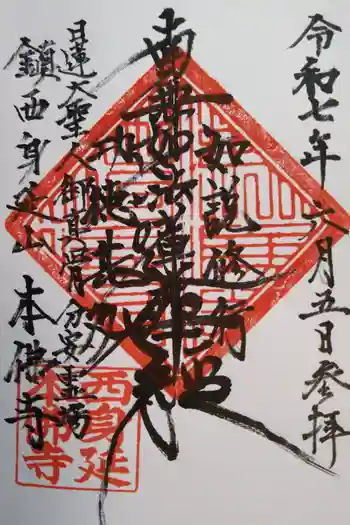 令和七年六月五日参拝
如説修行
南無妙法蓮華経
日蓮大聖人御真骨分安霊場
鎮西身延山 本佛寺
西身延
本佛寺